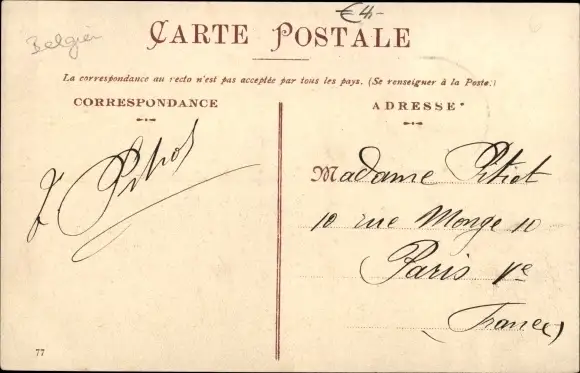 Belgien
€4,-
CARTE POSTALE
La correspondance au recto n'est pas acceptée par tous les pays. (Se renseigner à la Poste.)
CORRESPONDANCE
ADRESSE
Madame Pitiot
10 rue Monge 10
Paris Ve
(France)
77